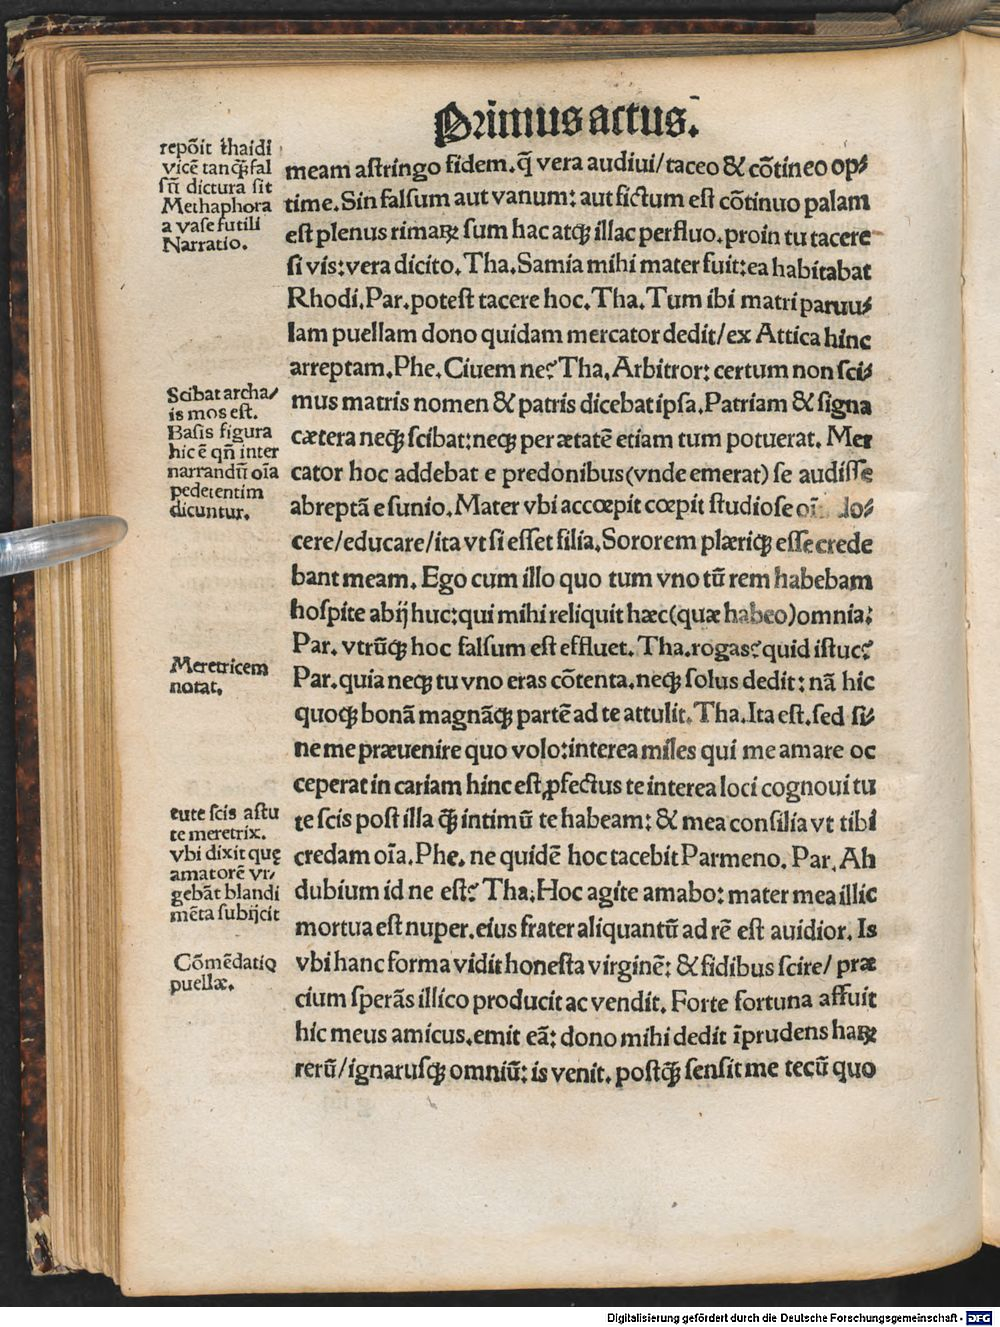 Primus actus.
repõit thaidi
vicē tanꝙ̃ fal
sũ dictura sit
Methaphora
a vase futili
Narratio.
meam astringo fidem. q̃ vera audiui/ taceo & cõtineo op⸗
time. Sin falsum aut vanum: aut fictum est cõtinuo palam
est plenus rimaꝝ sum hac atꝙ illac perfluo. proin tu tacere
si vis: vera dicito. Tha. Samia mihi mater fuit: ea habitabat
Rhodi. Par. potest tacere hoc. Tha. Tum ibi matri paruu⸗
lam puellam dono quidam mercator dedit/ ex Attica hinc
arreptam. Phe. Ciuem ne? Tha. Arbitror: certum non sci⸗
mus matris nomen & patris dicebat ipsa. Patriam & signa
cætera neꝙ scibat: neꝙ per ætatē etiam tum potuerat. Mer
cator hoc addebat e predonibus (vnde emerat) se audisse
abreptã e sunio. Mater vbi accœpit cœpit studiose do⸗
cere/ educare/ ita vt si esset filia. Sororem plæriꝙ esse crede
bant meam. Ego cum illo quo tum vno tũ rem habebam
hospite abij huc: qui mihi reliquit hæc (quæ habeo) omnia:
Par. vtrũꝙ hoc falsum est effluet. Tha. rogas? quid istuc?
Par. quia neꝙ tu vno eras cõtenta. neꝙ solus dedit: nã hic
quoꝙ bonã magnãꝙ partē ad te attulit. Tha. Ita est. sed si⸗
ne me præuenire quo volo: interea miles qui me amare oc
ceperat in cariam hinc est ꝓfectus te interea loci cognoui tu
te scis post illa ꝙ̃ intimũ te habeam: & mea consilia vt tibi
credam oĩa. Phe. ne quidē hoc tacebit Parmeno. Par. Ah
dubium id ne est? Tha. Hoc agite amabo: mater mea illic
mortua est nuper. eius frater aliquantũ ad rē est auidior. Is
vbi hanc forma vidit honesta virginē: & fidibus scire/ præ
cium sperãs illico producit ac vendit. Forte fortuna affuit
hic meus amicus. emit eã: dono mihi dedit ĩprudens haꝝ
rerũ/ ignarusꝙ omniũ: is venit. postꝙ̃ sensit me tecũ quo
Scibat archa/
is mos est.
Basis figura
hic ē qñ inter
narrandũ oĩa
pedetentim
dicuntur.
Meretricem
notat.
tute scis astu
te meretrix.
vbi dixit quę
amatorē vr⸗
gebãt blandi
mēta subijcit
Cõmēdatio
puellæ.
Digitalisierung gefördert durch die Deutsche Forschungsgemeinschaft - DFG